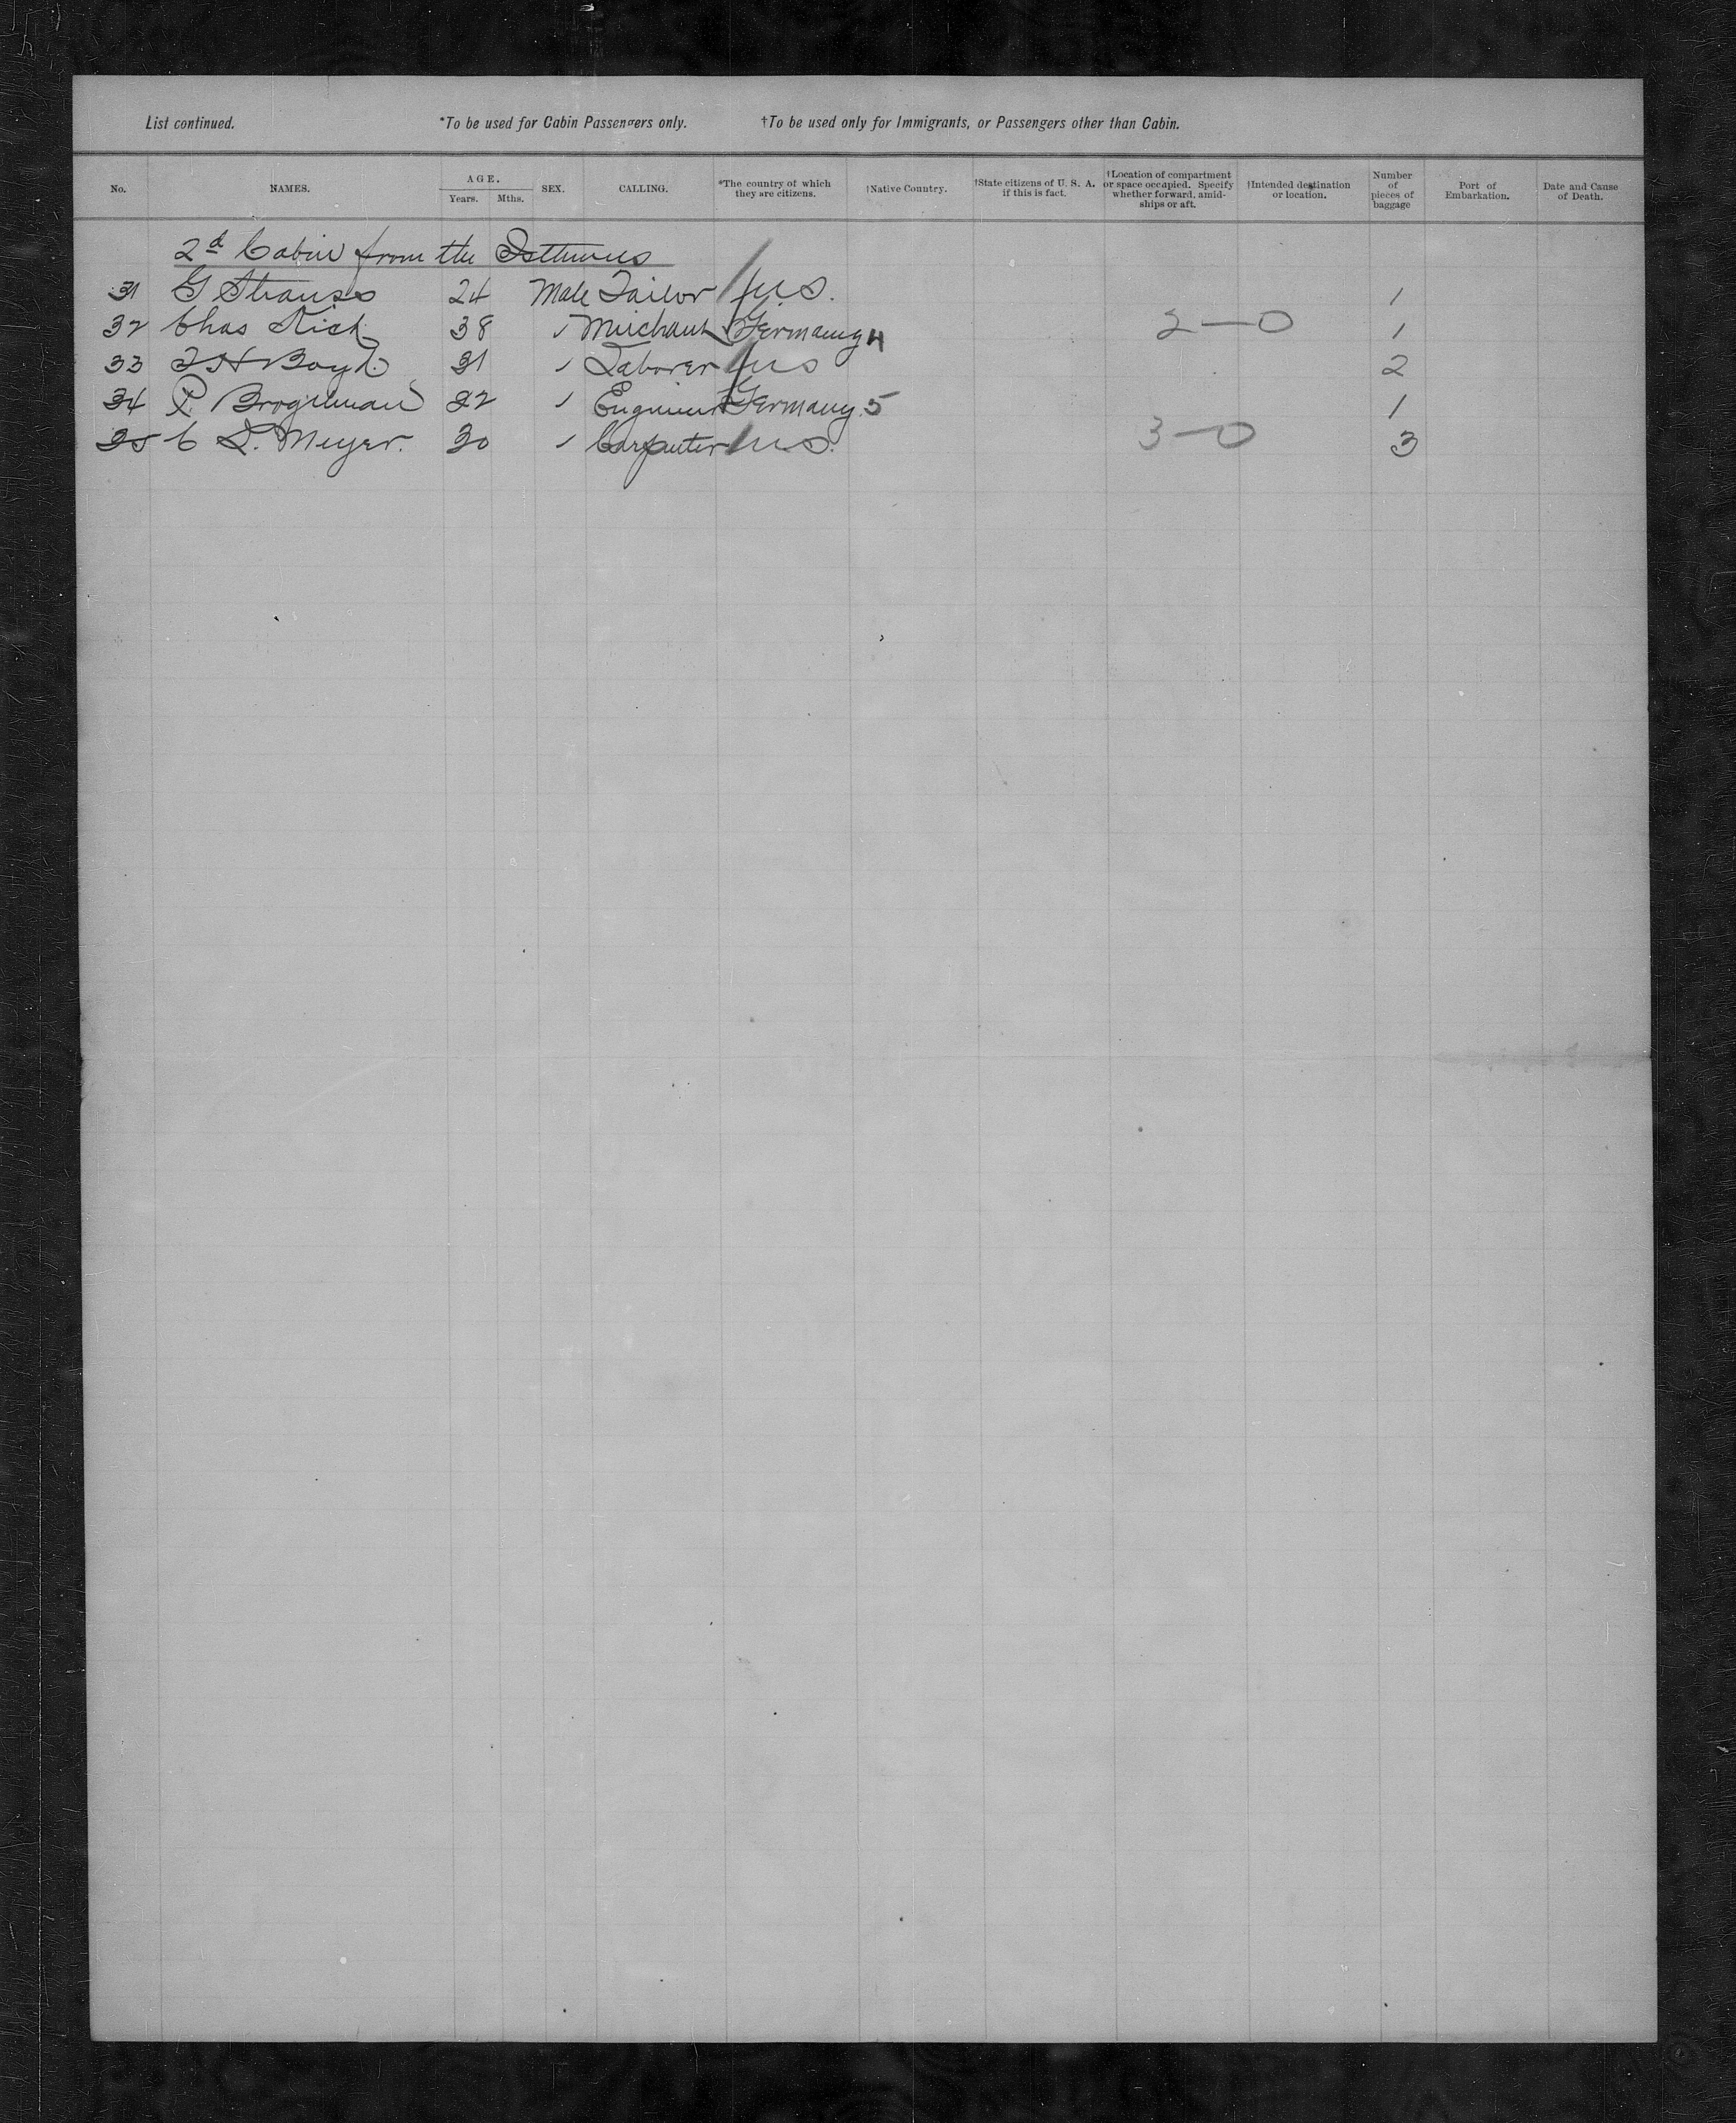 List continued. *To be used for Cabin Passengers only. †To be used only for Immigrants, or Passengers other than Cabin.
No. NAMES. AGE. Years. Mths. SEX. CALLING. *The country of which they are citizens. †Native Country. †State citizens of U. S. A. if this is fact. †Location of compartment or space occupied. Specify whether forward, amidships or aft. †Intended destination or location. Number of pieces of baggage Port of Embarkation. Date and Cause of Death.
2d Cabin from the Isthmus
31 G Strauss 24 Male Tailor U.S. 1
32 Chas Kick 38 Merchant Germany 4 2—0 1
33 Boyd. 31 Laborer U S 2
34 P. Brogelman 22 Engineer Germany. 5 1
35 C L. Meyer. 30 Carpenter U.S. 3—0 3